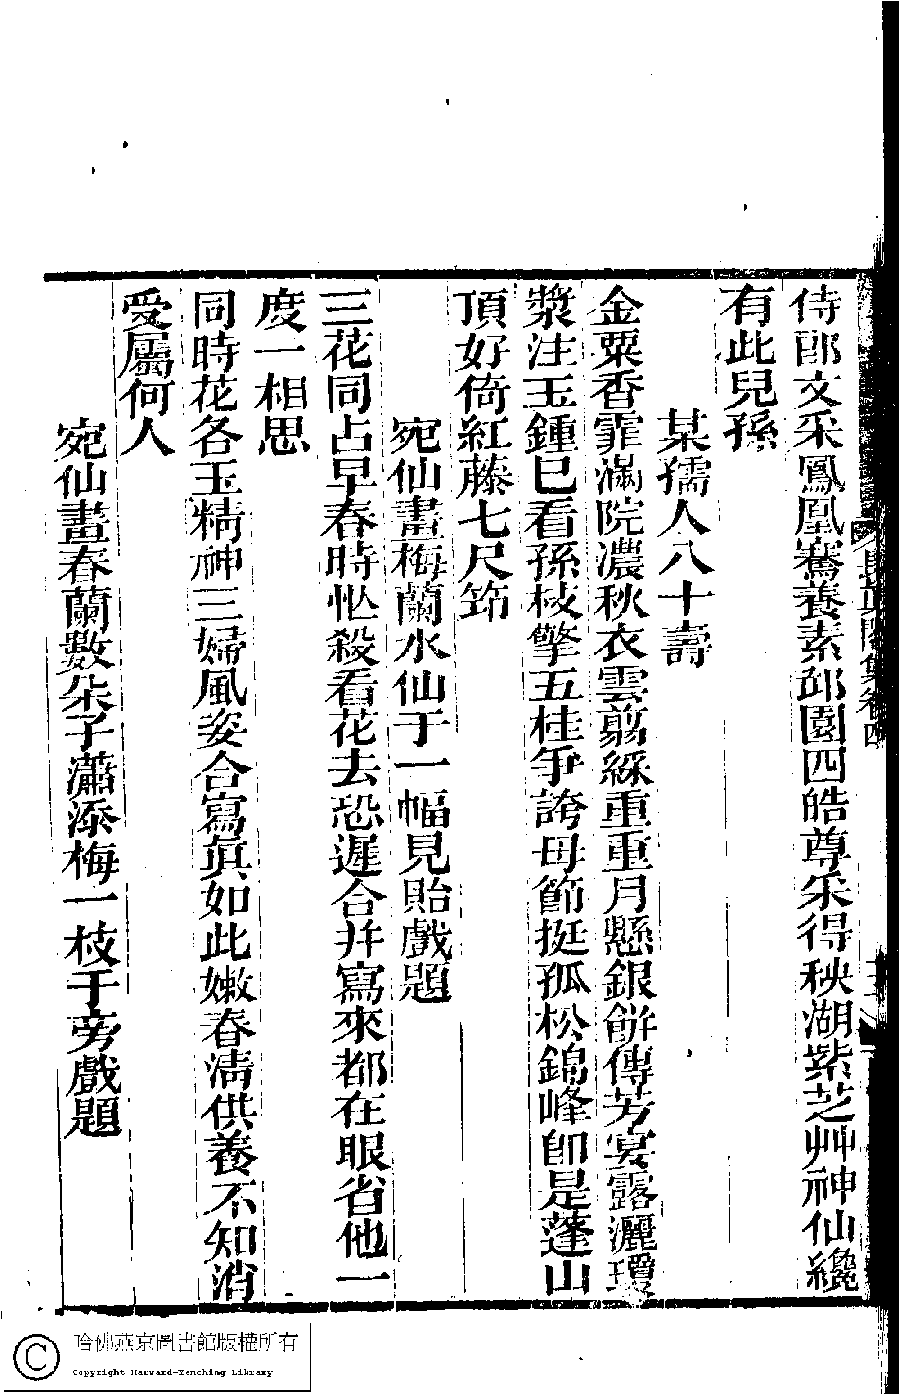 侍郎文采鳳凰騫養素邱園四皓尊采得秧湖紫芝艸神仙纔
有此兒孫
某孺人八十壽
金粟香霏滿院濃秋衣雲翦綵重重月懸銀餅傳芳宴露灑瓊
漿注玉鍾巳看孫枝擎五桂爭誇母節挺孤松錦峰卽是蓬山
頂好倚紅藤七尺筇
宛仙畫梅蘭水仙于一幅見貽戲題
三花同占早春時忙殺看花去恐遲合并寫來都在眼省他一
度一相思
同時花各玉精神三婦風姿合寫真如此嫩春淸供養不知消
受屬何人
宛仙畫春蘭數朵子瀟添梅一枝于旁戲題
集卷四
哈佛燕京圖書館版權所有
Copyright Harvard-Yenching Library